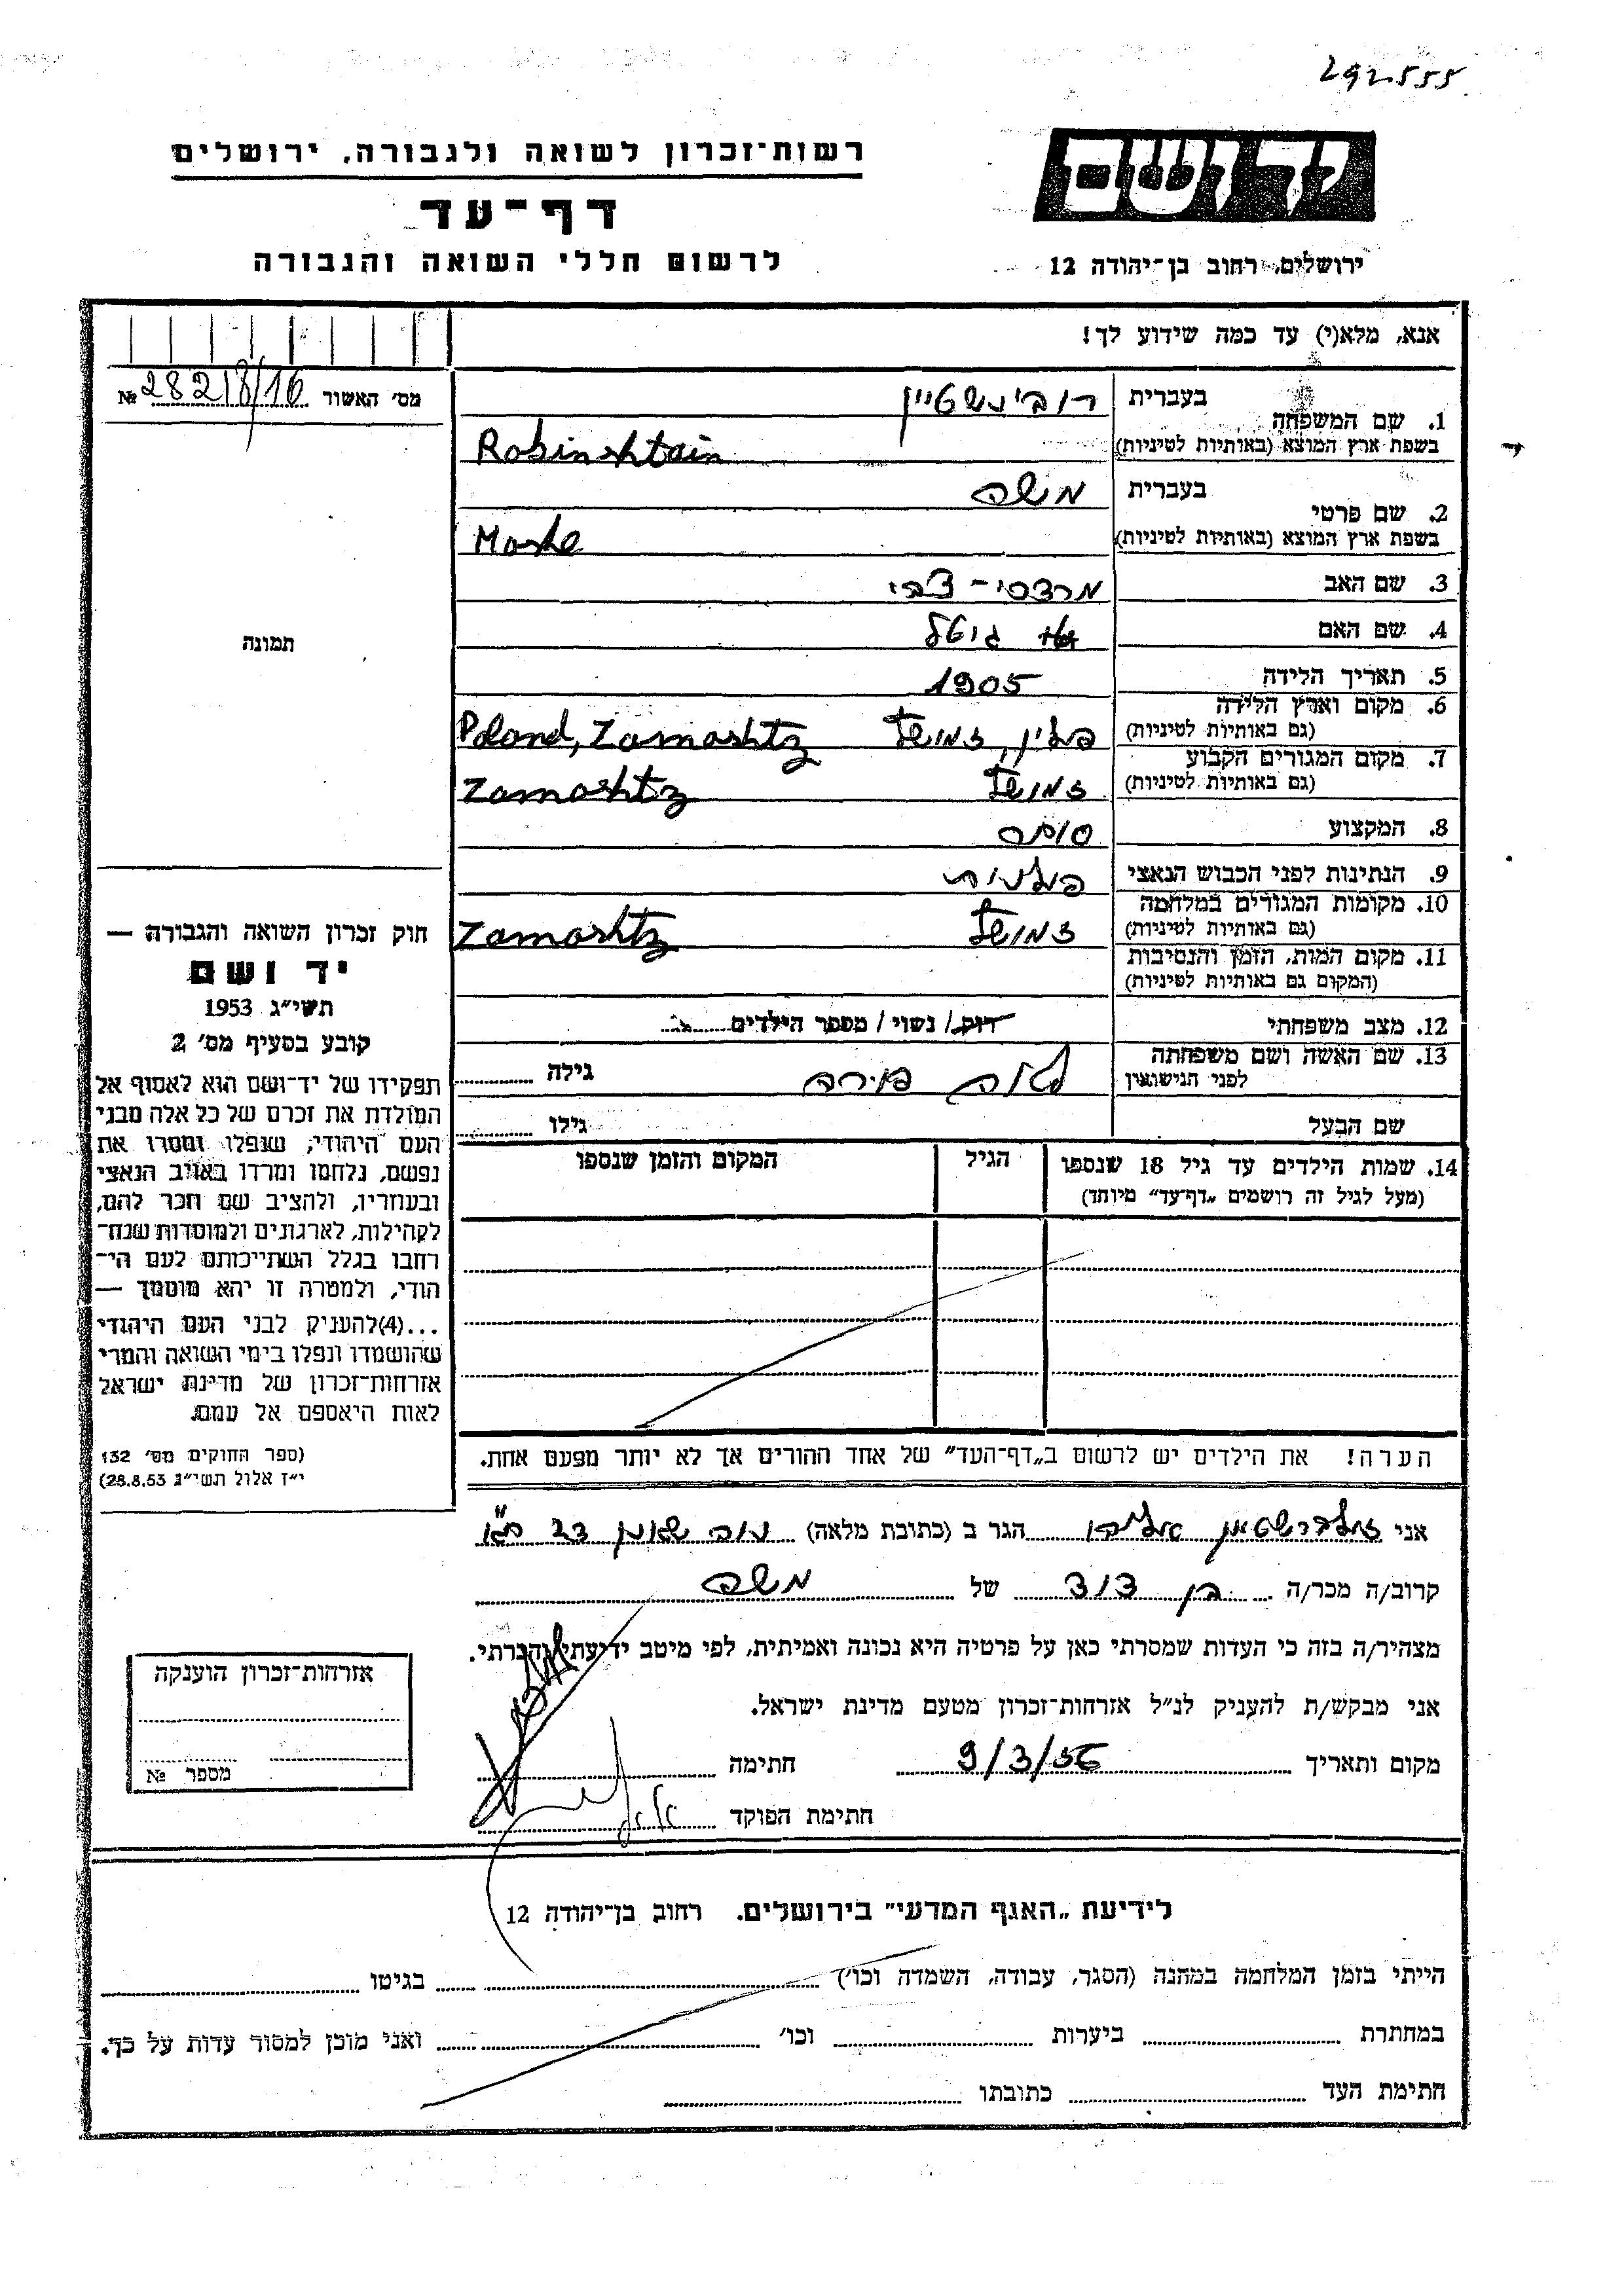 292555
יד ושם
רשות־זכרון לשואה ולגבורה, ירושלים
דף־עד
לרשום חללי השואה והגבורה
ירושלים, רחוב בן־יהודה 12
אנא, מלא(י) עד כמה שידוע לך!
מס' האשור № 28218/16
1. שם המשפחה בעברית רובינשטיין
בשפת ארץ המוצא (באותיות לטיניות) Robinshtain
2. שם פרטי בעברית משה
בשפת ארץ המוצא (באותיות לטיניות) Moshe
3. שם האב מרדכי - צבי
4. שם האם גיטל
5. תאריך הלידה 1905
6. מקום וארץ הלידה (גם באותיות לטיניות) פולין, זמושץ Poland, Zamoshtz
7. מקום המגורים הקבוע (גם באותיות לטיניות) זמושץ Zamoshtz
8. המקצוע סוחר
9. הנתינות לפני הכבוש הנאצי פולנית
10. מקומות המגורים במלחמה (גם באותיות לטיניות) זמושץ Zamoshtz
11. מקום המות, הזמן והנסיבות (המקום גם באותיות לטיניות)
12. מצב משפחתי רווק / נשוי / מספר הילדים
13. שם האשה ושם משפחתה לפני הנישואין לאה גילה
שם הבעל גילו
14. שמות הילדים עד גיל 18 שנספו הגיל המקום והזמן שנספו
(מעל לגיל זה רושמים „דף־עד” מיוחד)
הערה! את הילדים יש לרשום ב„דף־העד” של אחד ההורים אך לא יותר מפעם אחת.
תמונה
חוק זכרון השואה והגבורה —
יד ושם
תשי״ג 1953
קובע בסעיף מס' 2
תפקידו של יד־ושם הוא לאסוף אל
המולדת את זכרם של כל אלה מבני
העם היהודי, שנפלו ומסרו את
נפשם, נלחמו ומרדו באויב הנאצי
ובעוזריו, ולהציב שם וזכר להם,
לקהילות, לארגונים ולמוסדות שנח־
רבו בגלל השתייכותם לעם הי־
הודי, ולמטרה זו יהא מוסמך —
...(4)להעניק לבני העם היהודי
שהושמדו ונפלו בימי השואה והמרי
אזרחות־זכרון של מדינת ישראל
לאות היאספם אל עמם.
(ספר החוקים מס' 132
י״ז אלול תשי״ג 28.8.53)
אני אליהו הגר ב (כתובת מלאה)
קרוב/ה מכר/ה בן דוד של משה
מצהיר/ה בזה כי העדות שמסרתי כאן על פרטיה היא נכונה ואמיתית, לפי מיטב ידיעתי והכרתי.
אני מבקש/ת להעניק לנ״ל אזרחות־זכרון מטעם מדינת ישראל.
מקום ותאריך 9/3/56 חתימה
חתימת הפוקד
אזרחות־זכרון הוענקה
מספר №
לידיעת „האגף המדעי” בירושלים. רחוב בן־יהודה 12
הייתי בזמן המלחמה במחנה (הסגר, עבודה, השמדה וכו') בגיטו
במחתרת ביערות וכו' ואני מוכן למסור עדות על כך.
חתימת העד כתובתו